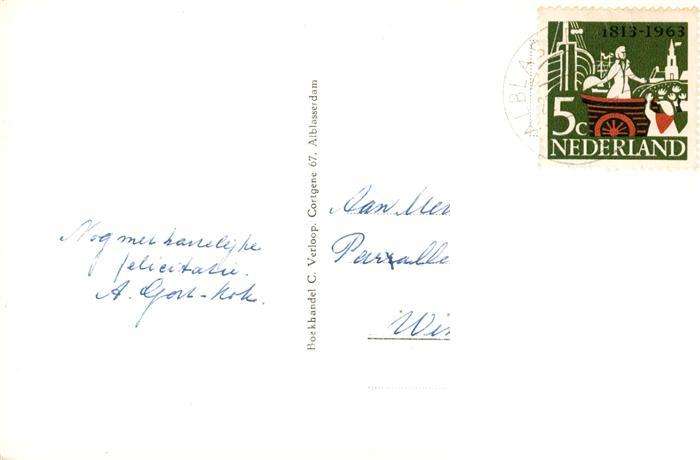 Nog met hartelijke
felicitatie.
A. Gort-Kok.
Boekhandel C. Verloop, Cortgene 67, Alblasserdam
1813-1963
5c
NEDERLAND
ALBLAS
Aan